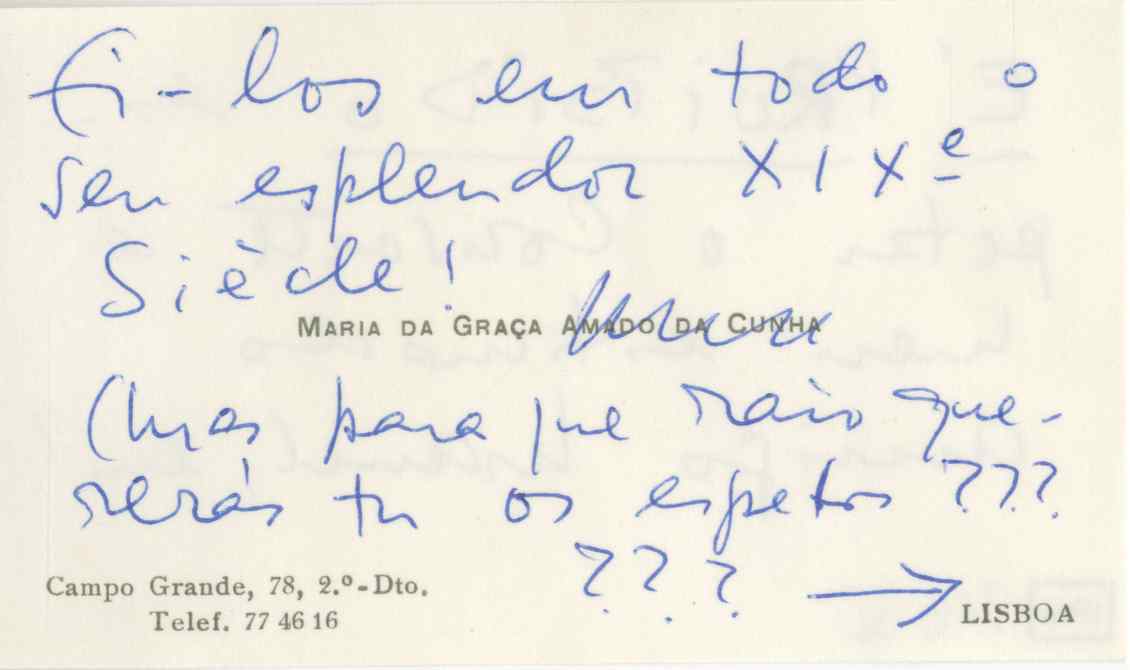 Ei-los em todo o
seu esplendor XIXᵉ
Siècle!
MARIA DA GRAÇA AMADO DA CUNHA
(mas para que raio que-
rerás tu os espetos ???
??? →
Campo Grande, 78, 2.º-Dto.
Telef. 77 46 16
LISBOA